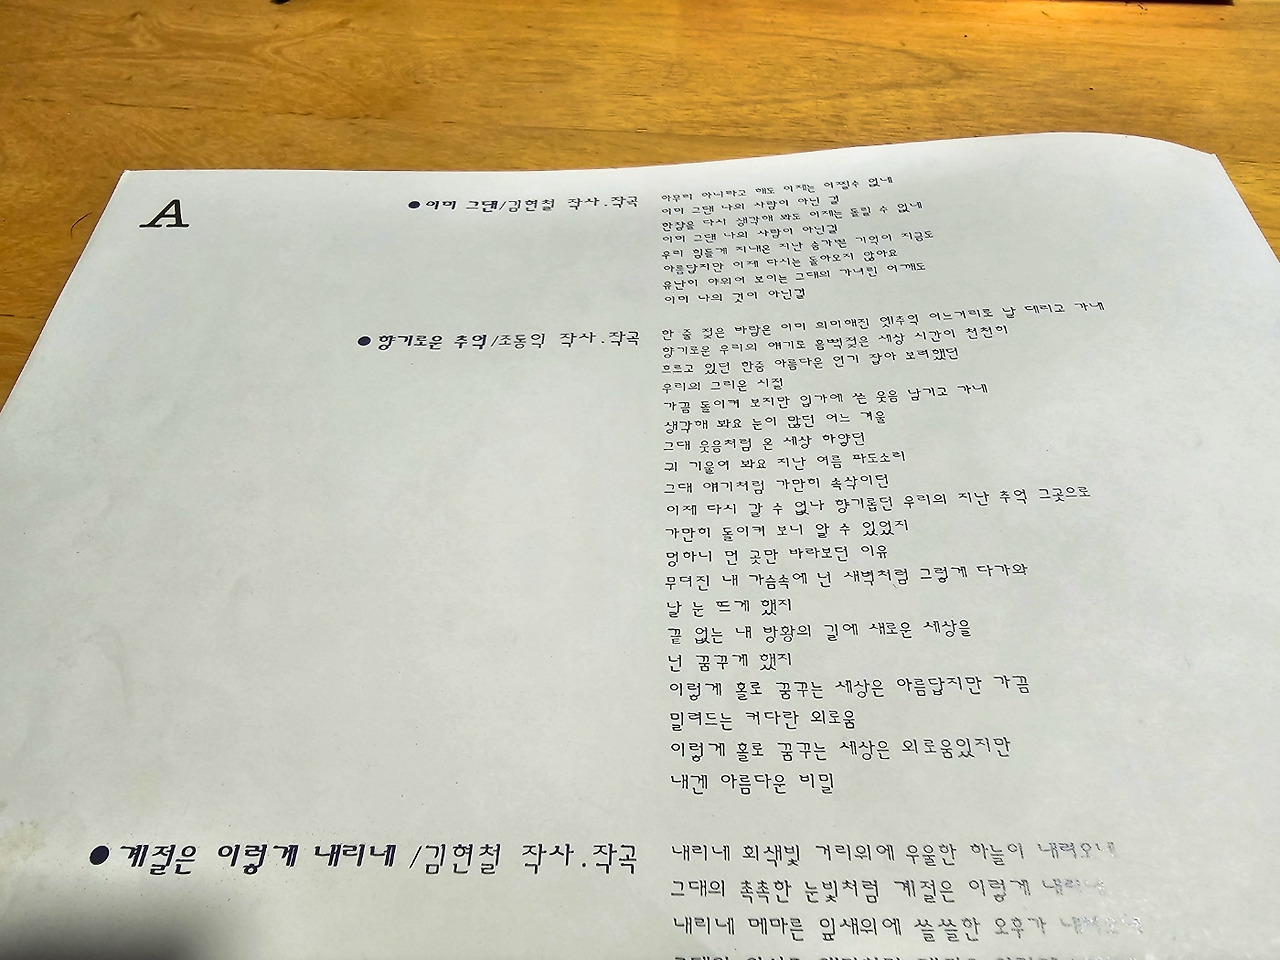 A
● 이미 그댄/김현철 작사.작곡
아무리 아니라고 해도 이제는 어쩔수 없네
이미 그댄 나의 사람이 아닌 걸
한참을 다시 생각해 봐도 이제는 돌릴 수 없네
이미 그댄 나의 사람이 아닌걸
우리 힘들게 지내온 지난 숨가쁜 기억이 지금도
아름답지만 이제 다시는 돌아오지 않아요
유난히 야위어 보이는 그대의 가녀린 어깨도
이미 나의 것이 아닌걸
● 향기로운 추억/조동익 작사.작곡
한 줄 젖은 바람은 이미 희미해진 옛추억 어느거리로 날 데리고 가네
향기로운 우리의 얘기로 흠뻑젖은 세상 시간이 천천히
흐르고 있던 한줌 아름다운 연기 잡아 보려했던
우리의 그리운 시절
가끔 돌이켜 보지만 입가에 쓴 웃음 남기고 가네
생각해 봐요 눈이 많던 어느 겨울
그대 웃음처럼 온 세상 하얗던
귀 기울여 봐요 지난 여름 파도소리
그대 얘기처럼 가만히 속삭이던
이제 다시 갈 수 없나 향기롭던 우리의 지난 추억 그곳으로
가만히 돌이켜 보니 알 수 있었지
멍하니 먼 곳만 바라보던 이유
무뎌진 내 가슴속에 넌 새벽처럼 그렇게 다가와
날 눈 뜨게 했지
끝 없는 내 방황의 길에 새로운 세상을
넌 꿈꾸게 했지
이렇게 홀로 꿈꾸는 세상은 아름답지만 가끔
밀려드는 커다란 외로움
이렇게 홀로 꿈꾸는 세상은 외로움있지만
내겐 아름다운 비밀
● 계절은 이렇게 내리네/김현철 작사.작곡
내리네 회색빛 거리위에 우울한 하늘이 내려오네
그대의 촉촉한 눈빛처럼 계절은 이렇게 내리네
내리네 메마른 잎새위에 쓸쓸한 오후가 내려오네